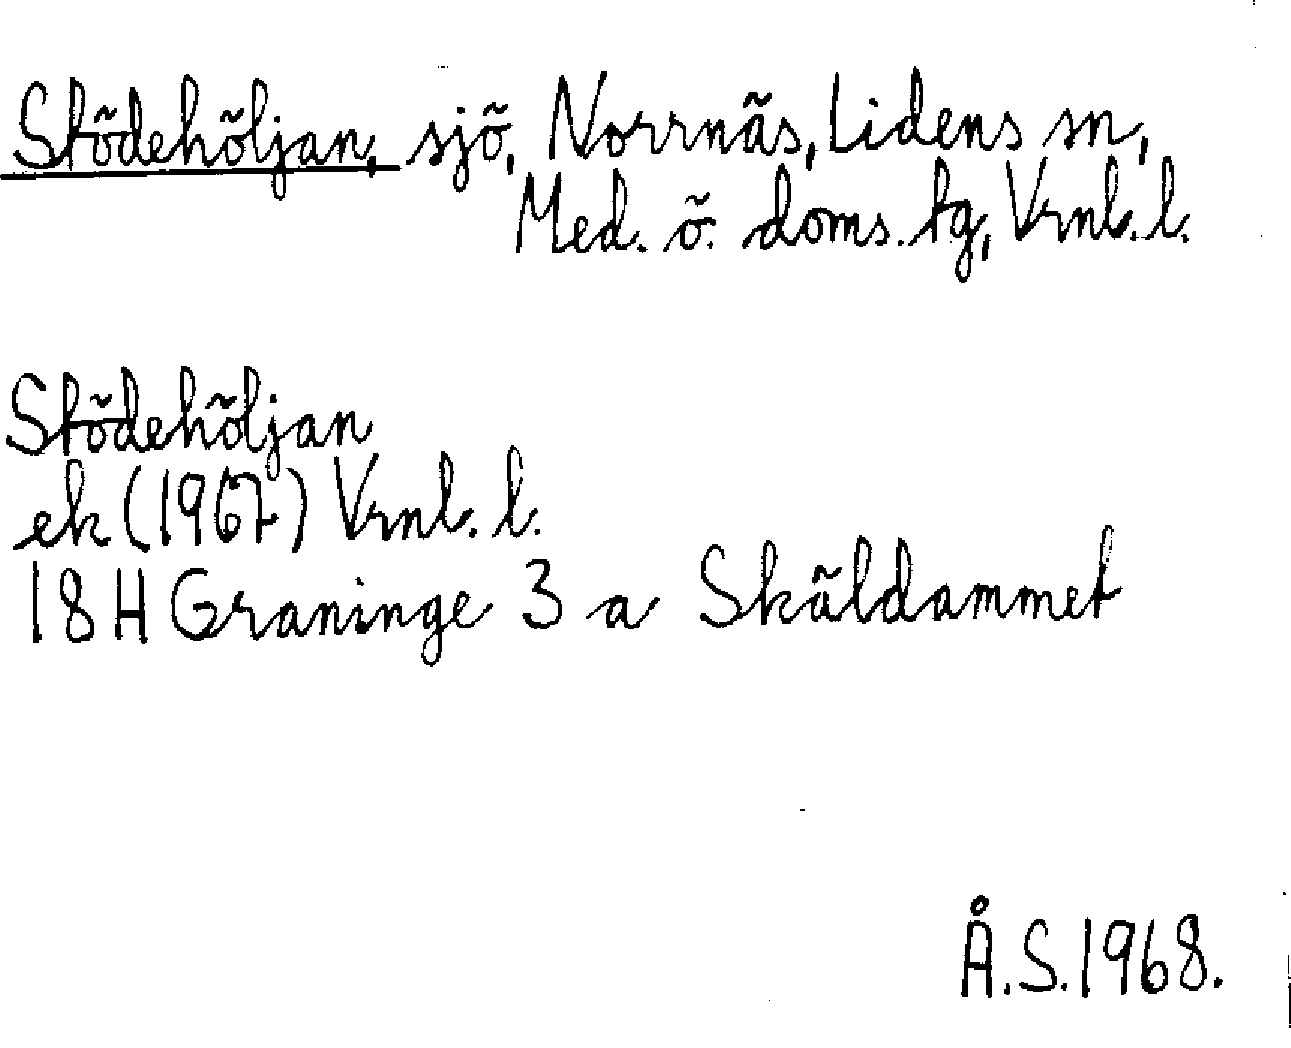 Stödehöljan, sjö, Norrnäs, Lidens sn,
Med. ö. doms. tg, Vrnl. l.
Stödehöljan
ek (1967) Vrnl. l.
18H Graninge 3 a Skäldammet
Å.S. 1968.